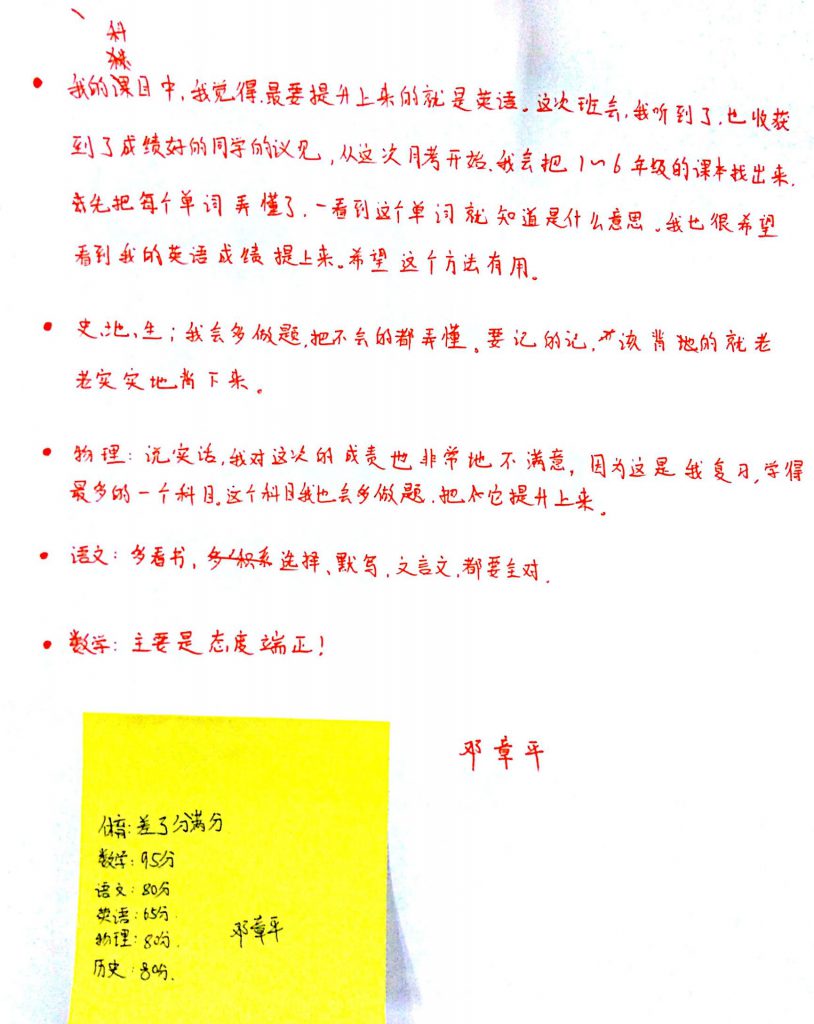 科
我的课目中,我觉得.最要提升上来的就是英语。这次班会,我听到了,也收获
到了成绩好的同学的议见,从这次月考开始、我会把1~6年级的课本找出来.
去先把每个单词弄懂了,一看到这个单词就知道是什么意思。我也很希望
看到我的英语成绩提上来。希望这个方法有用。
史、地、生;我会多做题,把不会的都弄懂。要记的记,该背地的就老
老实实地背下来。
物理:说实话,我对这次的成责也非常地不满意,因为这是我复习,学得
最多的一个科目。这个科目我也会多做题.把它提升上来。
语文:多看书,多积系选择、默写,文言文,都要全对.
数学:主要是态度端正!
邓章平
体育:差了分满分
数学:95分
语文:80分
英语:65分
物理:80分.
邓章平
历史:80分.